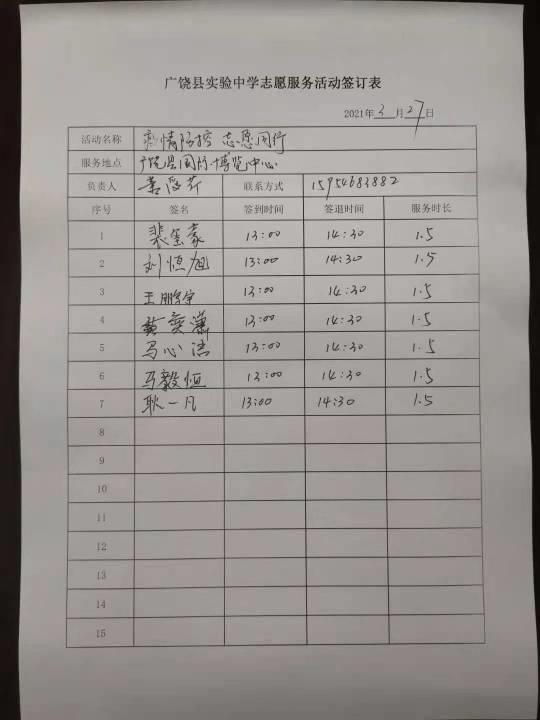 广饶县实验中学志愿服务活动签订表
2021年 3 月 27 日
活动名称 疫情防控 志愿同行
服务地点 广饶县国际博览中心
负责人 联系方式 15954683882
序号 签名 签到时间 签退时间 服务时长
1 裴 豪 13:00 14:30 1.5
2 刘恒旭 13:00 14:30 1.5
3 王鹏宇 13:00 14:30 1.5
4 黄奕潇 13:00 14:30 1.5
5 马心洁 13:00 14:30 1.5
6 马毅恒 13:00 14:30 1.5
7 耿一凡 13:00 14:30 1.5
8
9
10
11
12
13
14
15